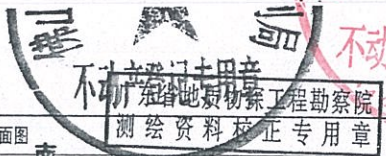 不动
不动产登记专用章
广东省地质物探工程勘察院
测绘资料校正专用章
面图